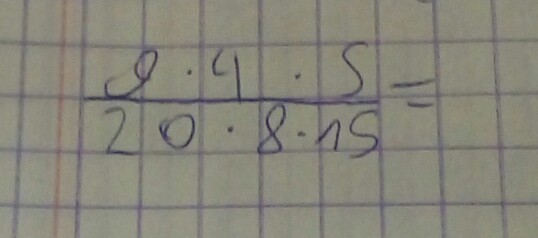 9 · 4 · 5 =
20 · 8 · 15